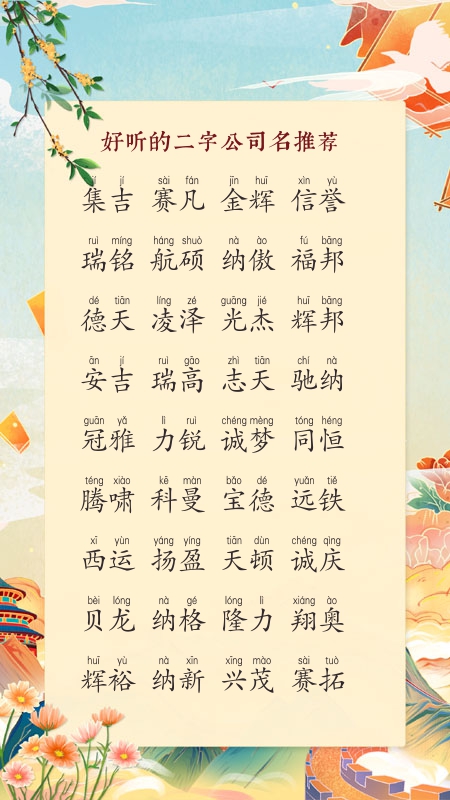 好听的二字公司名推荐
jí jí sài fán jīn huī xìn yù
集吉 赛凡 金辉 信誉
ruì míng háng shuò nà ào fú bāng
瑞铭 航硕 纳傲 福邦
dé tiān líng zé guāng jié huī bāng
德天 凌泽 光杰 辉邦
ān jí ruì gāo zhì tiān chí nà
安吉 瑞高 志天 驰纳
guān yǎ lì ruì chéng mèng tóng héng
冠雅 力锐 诚梦 同恒
téng xiào kē màn bǎo dé yuǎn tiě
腾啸 科曼 宝德 远铁
xī yùn yáng yíng tiān dùn chéng qìng
西运 扬盈 天顿 诚庆
bèi lóng nà gé lóng lì xiáng ào
贝龙 纳格 隆力 翔奥
huī yù nà xīn xīng mào sài tuò
辉裕 纳新 兴茂 赛拓